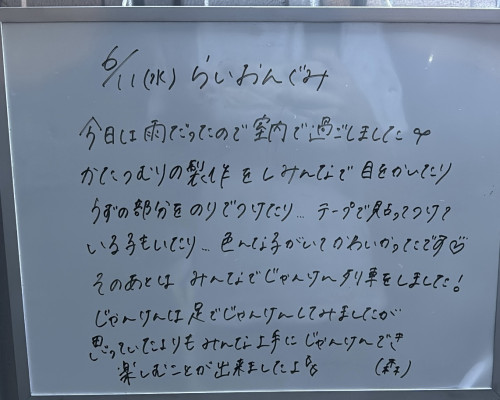 6/11(水) らいおんぐみ
今日は雨だったので室内で過ごしました
かたつむりの製作をしみんなで目をかいたり
うずの部分をのりでつけたり… テープで貼ってつけて
いる子もいたり… 色んな子がいてかわいかったです♡
そのあとは みんなでじゃんけん列車をしました!
じゃんけんは足でじゃんけんしてみましたが
思っていたよりもみんな上手にじゃんけんでき
楽しむことが出来ましたよ (森)